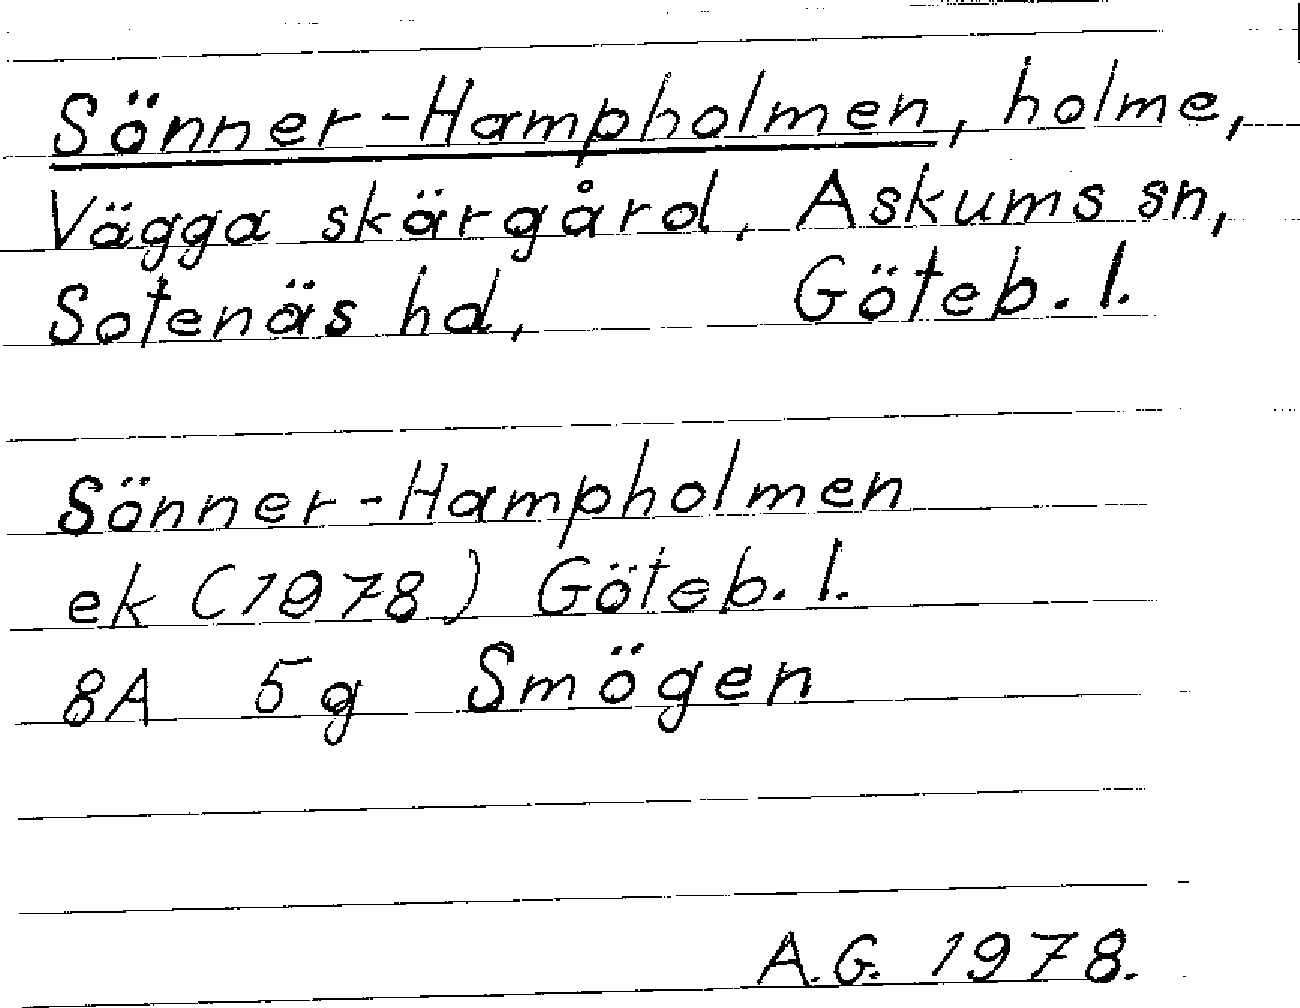 Sönner-Hampholmen, holme,
Vägga skärgård, Askums sn,
Sotenäs hd, Göteb. l.
Sönner-Hampholmen
ek (1978) Göteb. l.
8A 5g Smögen
A.G. 1978.